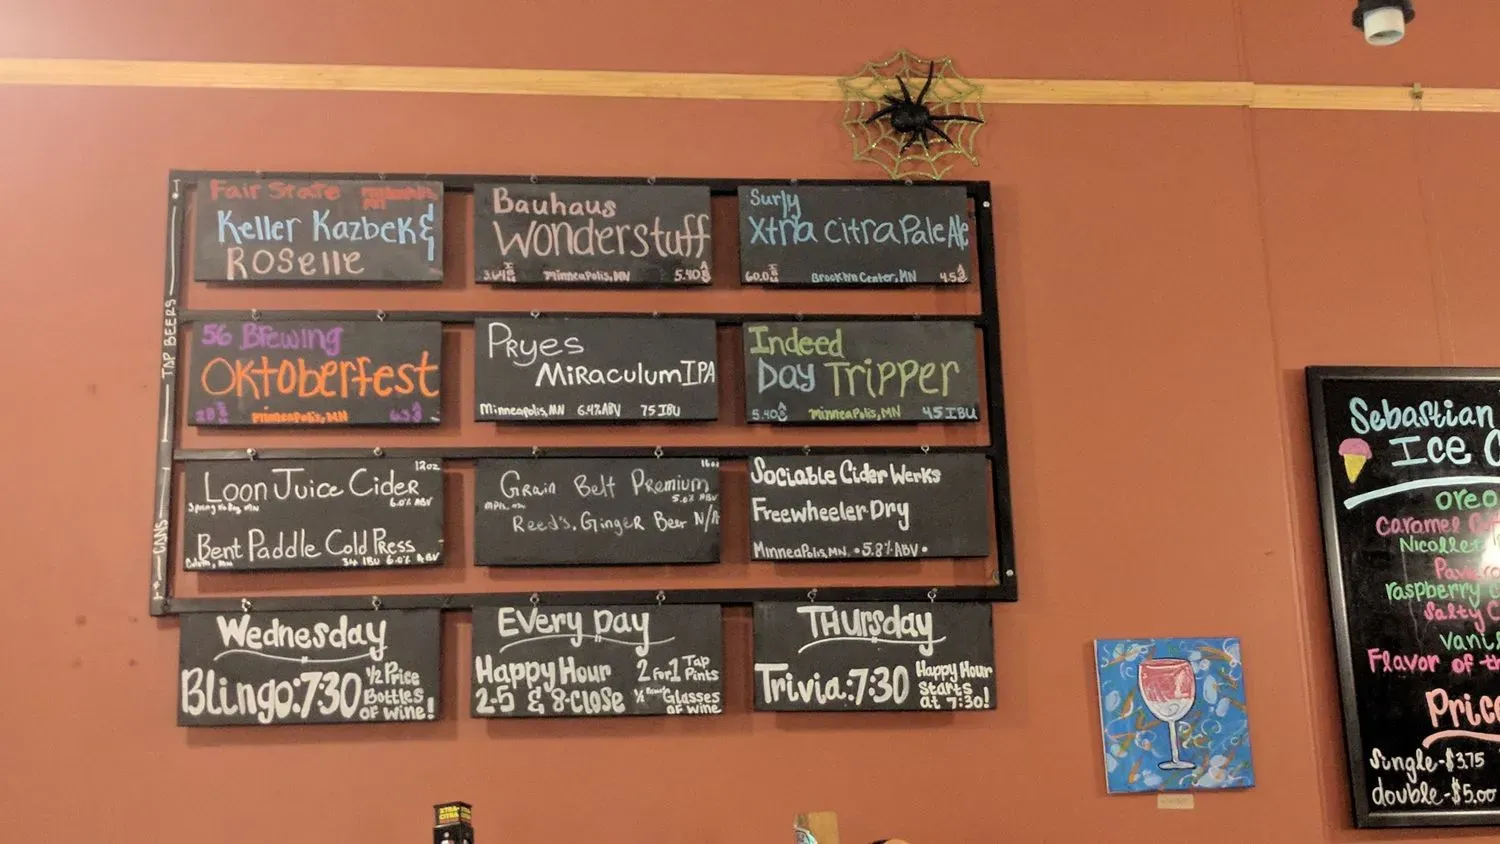 TAP BEERS
CANS
Fair State
Keller Kazbek &
Roselle
Bauhaus
Wonderstuff
Minneapolis, MN 5.40
Surly
Xtra Citra Pale Ale
60.0 Brooklyn Center, MN 4.5
56 Brewing
Oktoberfest
Minneapolis, MN
Pryes
Miraculum IPA
Minneapolis, MN 6.4% ABV 75 IBU
Indeed
Day Tripper
5.40 Minneapolis, MN 45 IBU
12oz
Loon Juice Cider
6.0% ABV
Bent Paddle Cold Press
34 IBU 6.0% ABV
16oz
Grain Belt Premium
5.0% ABV
Reed's, Ginger Beer N/A
Sociable Cider Werks
Freewheeler Dry
Minneapolis, MN • 5.8% ABV •
Wednesday
Blingo: 7:30
½ Price
Bottles
of wine!
Every Day
Happy Hour
2-5 & 8-close
2 for 1 Tap
Pints
Glasses
of wine
Thursday
Trivia: 7:30
Happy Hour
starts
at 7:30!
Sebastian
Ice C
Oreo
Caramel
Nicollet
raspberry
Salty C
Vani
Flavor of th
Pric
Single-$3.75
double-$5.00
XTRA-
CITRA